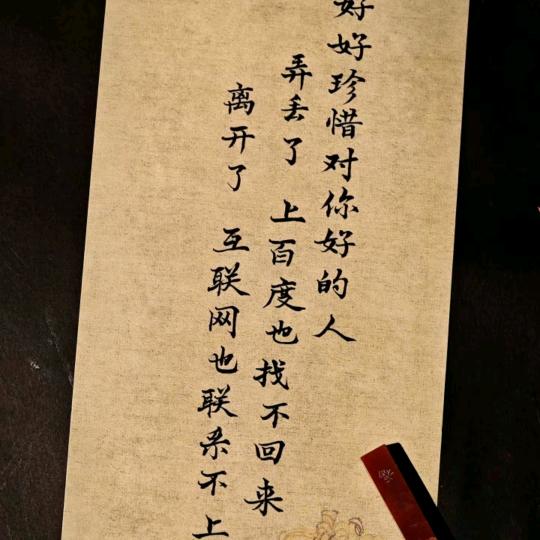 好好珍惜对你好的人
弄丢了 上百度也找不回来
离开了 互联网也联系不上